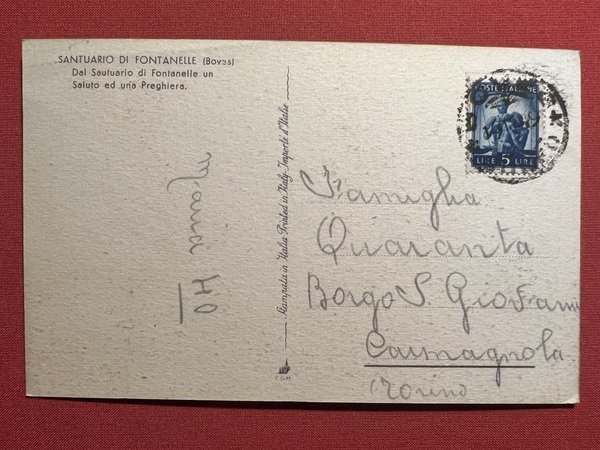 SANTUARIO DI FONTANELLE (Boves)
Dal Santuario di Fontanelle un
Saluto ed una Preghiera.
Maria 40
Stampata in Italia Printed in Italy Importé d'Italie
C.G.M.
POSTE ITALIANE
LIRE 5 LIRE
Famiglia
Quaranta
Borgo S. Giovanni
Carmagnola
(Torino